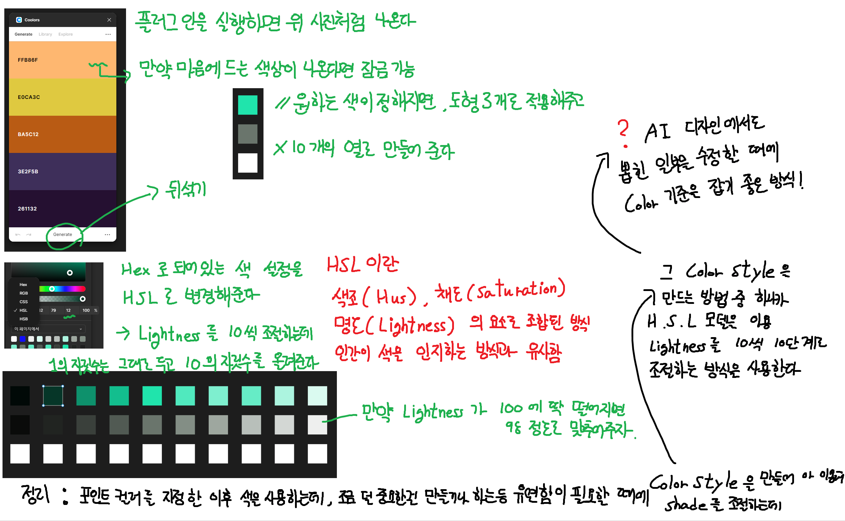 Coolors
Generate Library Explore
FFB86F
E0CA3C
BA5C12
3E2F5B
261132
Generate
플러그인을 실행하면 위 사진처럼 나온다
만약 마음에 드는 색상이 나온다면 잠금 가능
// 원하는 색이 정해지면, 도형 3개로 적용해주고
x 10개의 열로 만들어 준다
뒤섞기
? AI 디자인에서도
뽑힌 일부을 수정한 때에
Color 기준은 잡기 좋은 방식!
Hex
RGB
CSS
HSL
HSB
79 12 100%
이 페이지에서
Hex로 되어있는 색 설정을
HSL로 변경해준다
→ Lightness를 10씩 조절하는데
1의 자릿수는 그대로 두고 10의 자릿수를 올려준다
HSL이란
색조(Hus), 채도(Saturation)
명도(Lightness) 의 요소로 조합된 방식
인간이 색은 인지하는 방식과 유사함
그 Color Style은
만드는 방법 중 하나가
H.S.L 모델은 이용
Lightness를 10씩 10단계로
조절하는 방식은 사용한다
만약 Lightness가 100에 딱 떨어지면
98 정도로 맞추어주자.
정리 : 포인트 컬러를 지정한 이후 색은 사용하는데, 조금 더 중요한건 만들거나 하는등 유연함이 필요한 때에
Color Style은 만들어
shade를 조절하는데